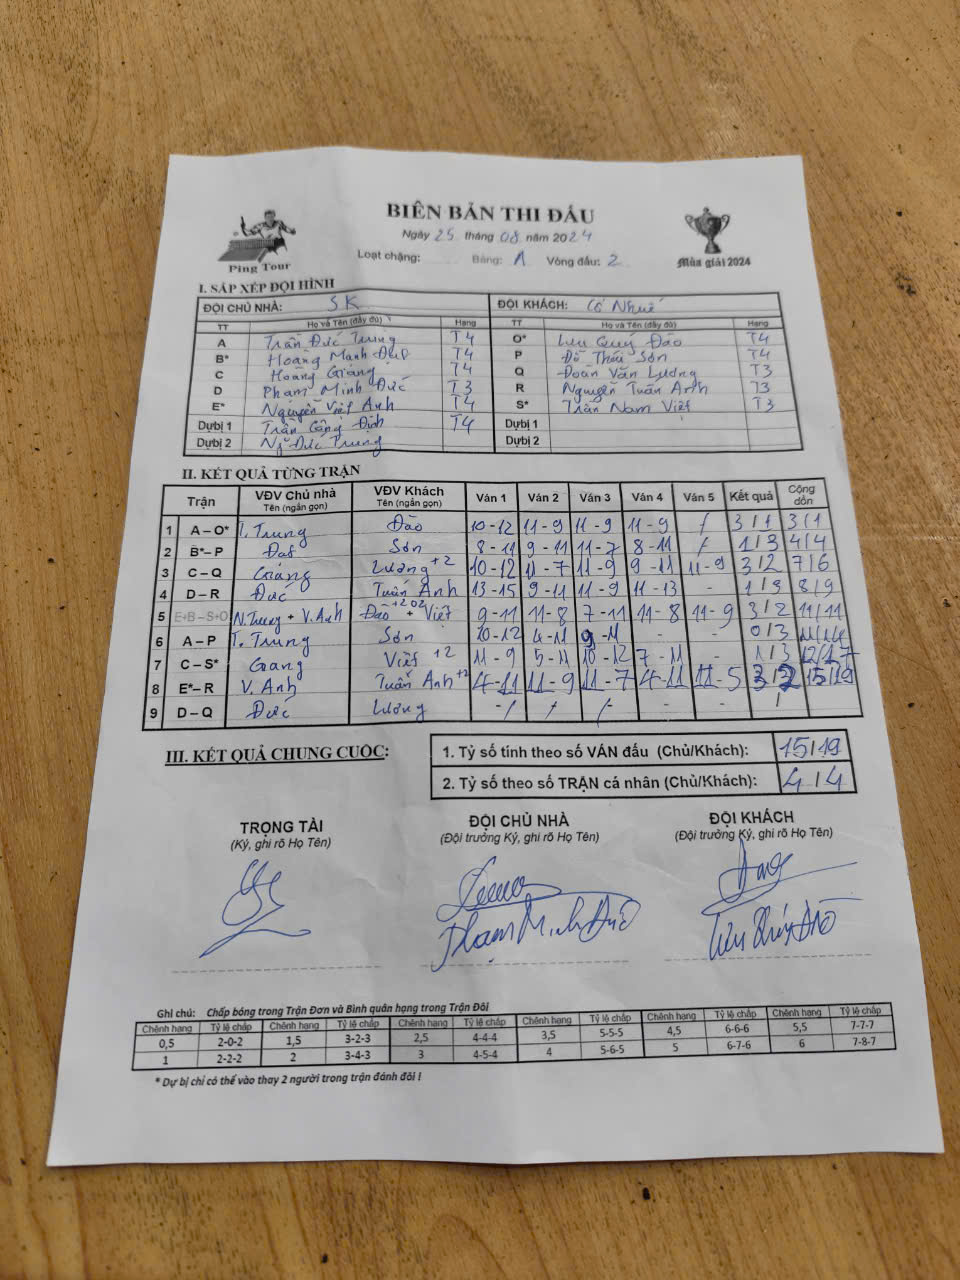 BIÊN BẢN THI ĐẤU
Ngày 25 tháng 08 năm 2024
Ping Tour
Loạt chặng: Bảng: A Vòng đấu: 2
Mùa giải 2024
I. SẮP XẾP ĐỘI HÌNH
ĐỘI CHỦ NHÀ: SK ĐỘI KHÁCH: Cổ Nhuế
TT Họ và Tên (đầy đủ) Hạng TT Họ và Tên (đầy đủ) Hạng
A Trần Đức Trung T4 O* Lưu Quý Đảo T4
B* Hoàng Mạnh T4 P Đỗ Thái Sơn T4
C Hoàng Giảng T4 Q Đoàn Văn Lương T3
D Phạm Minh Đức T3 R Nguyễn Tuấn Anh T3
E* Nguyễn Việt Anh T4 S* Trần Nam Việt T3
Dự bị 1 Trần Công Định T4 Dự bị 1
Dự bị 2 Ng Đức Trung Dự bị 2
II. KẾT QUẢ TỪNG TRẬN
Trận VĐV Chủ nhà Tên (ngắn gọn) VĐV Khách Tên (ngắn gọn) Ván 1 Ván 2 Ván 3 Ván 4 Ván 5 Kết quả Cộng dồn
1 A – O* T. Trung Đảo 10-12 11-9 11-9 11-9 / 3/1 3/1
2 B* – P Sơn 8-11 9-11 11-7 8-11 / 1/3 4/4
3 C – Q Giảng Lương +2 10-12 11-7 11-9 9-11 11-9 3/2 7/6
4 D – R Đức Tuấn Anh 13-15 9-11 11-9 11-13 - 1/3 8/9
5 E+B – S+O N.Trung + V.Anh Đảo + Việt 9-11 11-8 7-11 11-8 11-9 3/2 11/11
6 A – P T. Trung Sơn 10-12 4-11 9-11 - - 0/3 11/14
7 C – S* Giang Việt +2 11-9 5-11 10-12 7-11 - 1/3 12/17
8 E* – R V. Anh Tuấn Anh +2 4-11 11-9 11-7 4-11 11-5 3/2 15/19
9 D – Q Đức Lương -/ / /- - - /
III. KẾT QUẢ CHUNG CUỘC:
1. Tỷ số tính theo số VÁN đấu (Chủ/Khách): 15/19
2. Tỷ số theo số TRẬN cá nhân (Chủ/Khách): 4/4
TRỌNG TÀI ĐỘI CHỦ NHÀ ĐỘI KHÁCH
(Ký, ghi rõ Họ Tên) (Đội trưởng Ký, ghi rõ Họ Tên) (Đội trưởng Ký, ghi rõ Họ Tên)
Phạm Minh Đức
Ghi chú: Chấp bóng trong Trận Đơn và Bình quân hạng trong Trận Đôi
Chênh hạng Tỷ lệ chấp Chênh hạng Tỷ lệ chấp Chênh hạng Tỷ lệ chấp Chênh hạng Tỷ lệ chấp Chênh hạng Tỷ lệ chấp Chênh hạng Tỷ lệ chấp
0,5 2-0-2 1,5 3-2-3 2,5 4-4-4 3,5 5-5-5 4,5 6-6-6 5,5 7-7-7
1 2-2-2 2 3-4-3 3 4-5-4 4 5-6-5 5 6-7-6 6 7-8-7
* Dự bị chỉ có thể vào thay 2 người trong trận đánh đôi !